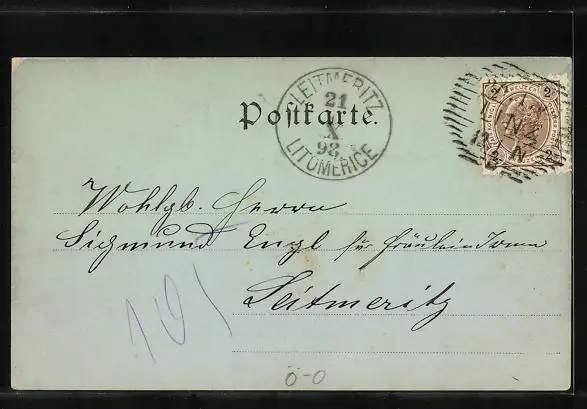 LEITMERITZ
21
X
98
LITOMĚŘICE
Postkarte.
2 2
2 2
Wohlgb. Herrn
Sigmund Engl für Fräulein Irma
Leitmeritz
101
Ö-O